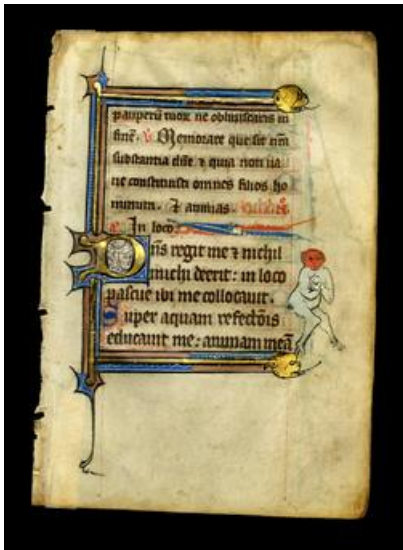 pauperū tuoꝝ ne obliuiscaris in
finē. ℣ Memorare que sit nrā
substantia
ne constituisti omnes filios ho
minum. ⁊ animas.
In loco
Dn̄s regit me ⁊ nichil
michi deerit: in loco
pascue ibi me collocauit.
Super aquam refectōis
educauit me: animam meā